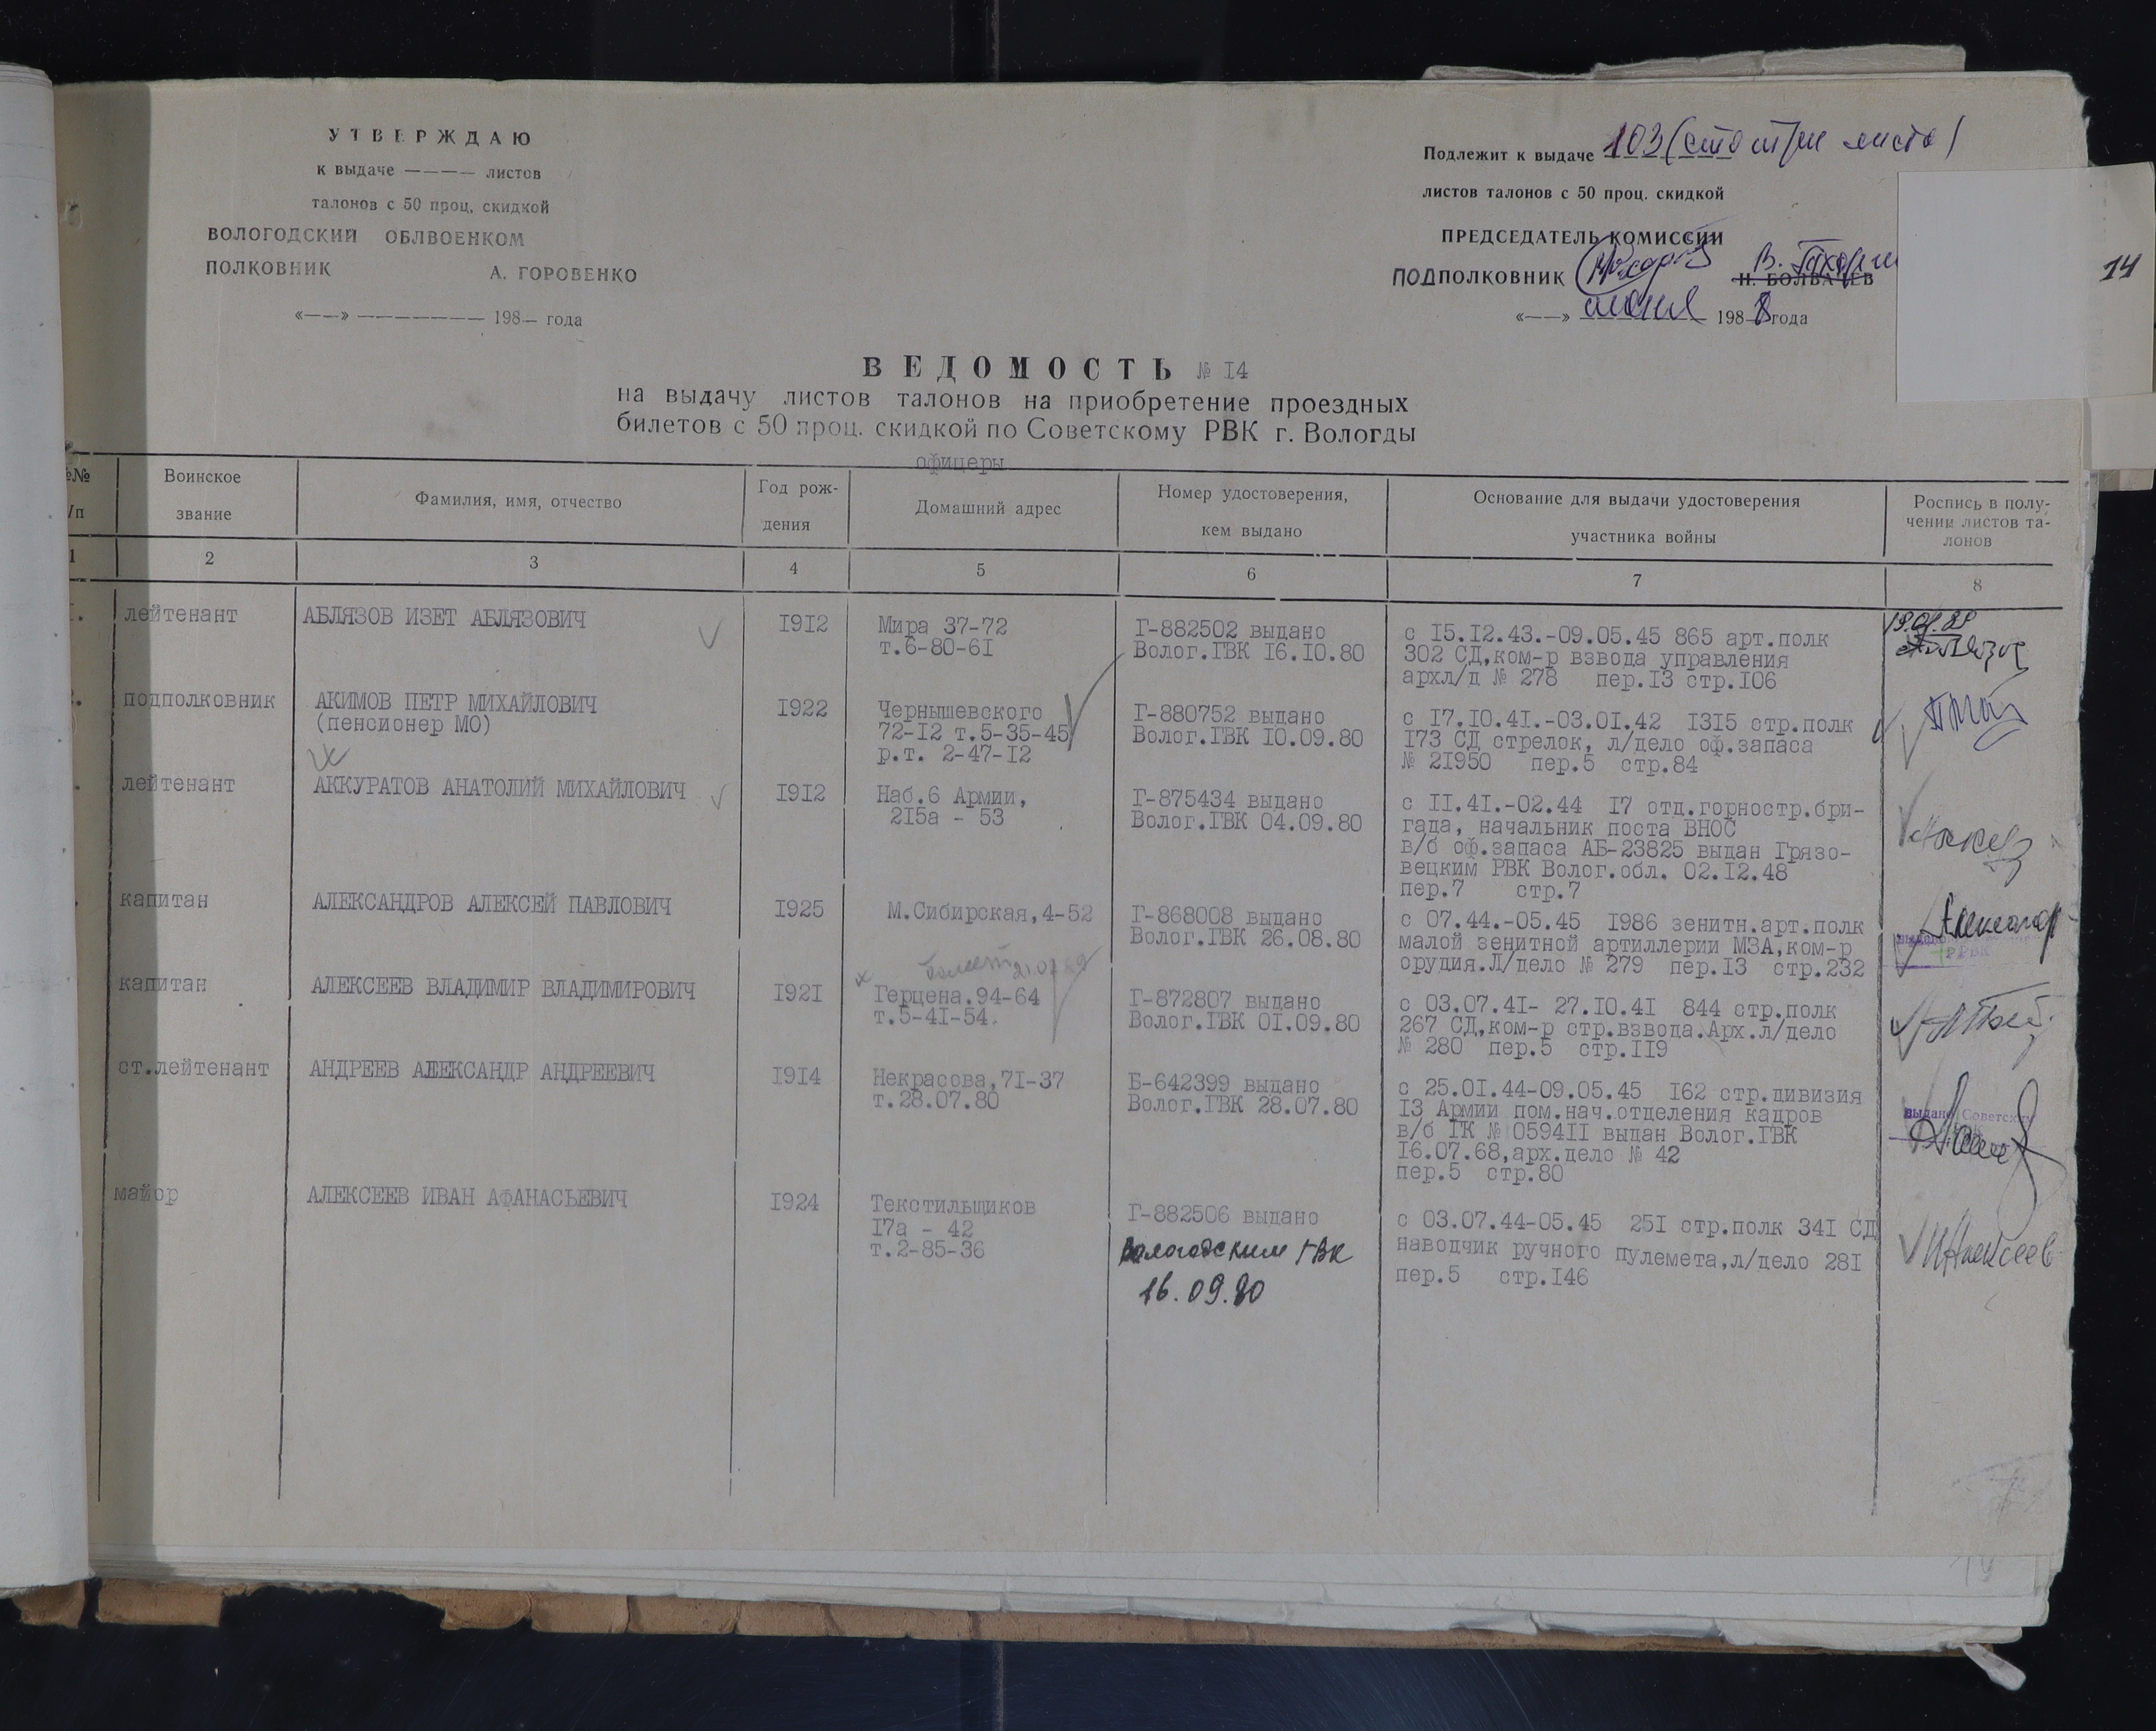 УТВЕРЖДАЮ
к выдаче ———— листов
талонов с 50 проц. скидкой
ВОЛОГОДСКИЙ ОБЛВОЕНКОМ
ПОЛКОВНИК А. ГОРОВЕНКО
«——» ——————— 198— года
Подлежит к выдаче 103 (сто три листа)
листов талонов с 50 проц. скидкой
ПРЕДСЕДАТЕЛЬ КОМИССИИ
ПОДПОЛКОВНИК В. Н. БОЛВАЧЕВ
«——» июня 1988 года
14
ВЕДОМОСТЬ № I4
на выдачу листов талонов на приобретение проездных
билетов с 50 проц. скидкой по Советскому РВК г. Вологды
офицеры
№№ /п
Воинское звание
Фамилия, имя, отчество
Год рож-
дения
Домашний адрес
Номер удостоверения,
кем выдано
Основание для выдачи удостоверения
участника войны
Роспись в полу-
чении листов та-
лонов
1 2 3 4 5 6 7 8
I. лейтенант АБЛЯЗОВ ИЗЕТ АБЛЯЗОВИЧ I9I2 Мира 37-72 Г-882502 выдано с I5.I2.43.-09.05.45 865 арт.полк
т.6-80-6I Волог.ГВК I6.I0.80 302 СД,ком-р взвода управления
архл/д № 278 пер.I3 стр.I06
. подполковник АКИМОВ ПЕТР МИХАЙЛОВИЧ I922 Чернышевского Г-880752 выдано с I7.I0.4I.-03.0I.42 I3I5 стр.полк
(пенсионер МО) 72-I2 т.5-35-45 Волог.ГВК I0.09.80 I73 СД стрелок, л/дело оф.запаса
р.т. 2-47-I2 № 2I950 пер.5 стр.84
. лейтенант АККУРАТОВ АНАТОЛИЙ МИХАЙЛОВИЧ I9I2 Наб.6 Армии, Г-875434 выдано с II.4I.-02.44 I7 отд.горностр.бри-
2I5а - 53 Волог.ГВК 04.09.80 гада, начальник поста ВНОС
в/б оф.запаса АБ-23825 выдан Грязо-
вецким РВК Волог.обл. 02.I2.48
пер.7 стр.7
. капитан АЛЕКСАНДРОВ АЛЕКСЕЙ ПАВЛОВИЧ I925 М.Сибирская,4-52 Г-868008 выдано с 07.44.-05.45 I986 зенитн.арт.полк
Волог.ГВК 26.08.80 малой зенитной артиллерии МЗА,ком-р
орудия.Л/дело № 279 пер.I3 стр.232
РВК
капитан АЛЕКСЕЕВ ВЛАДИМИР ВЛАДИМИРОВИЧ I92I Герцена.94-64 Г-872807 выдано с 03.07.4I- 27.I0.4I 844 стр.полк
т.5-4I-54. Волог.ГВК 0I.09.80 267 СД,ком-р стр.взвода.Арх.л/дело
№ 280 пер.5 стр.II9
ст.лейтенант АНДРЕЕВ АЛЕКСАНДР АНДРЕЕВИЧ I9I4 Некрасова,7I-37 Б-642399 выдано с 25.0I.44-09.05.45 I62 стр.дивизия
т.28.07.80 Волог.ГВК 28.07.80 I3 Армии пом.нач.отделения кадров
в/б ГК № 0594II выдан Волог.ГВК
I6.07.68,арх.дело № 42
пер.5 стр.80
выдано Советск
майор АЛЕКСЕЕВ ИВАН АФАНАСЬЕВИЧ I924 Текстильщиков Г-882506 выдано с 03.07.44-05.45 25I стр.полк 34I СД
I7а - 42 Вологодским ГВК наводчик ручного пулемета,л/дело 28I
т.2-85-36 16.09.80 пер.5 стр.I46
ИАлексеев